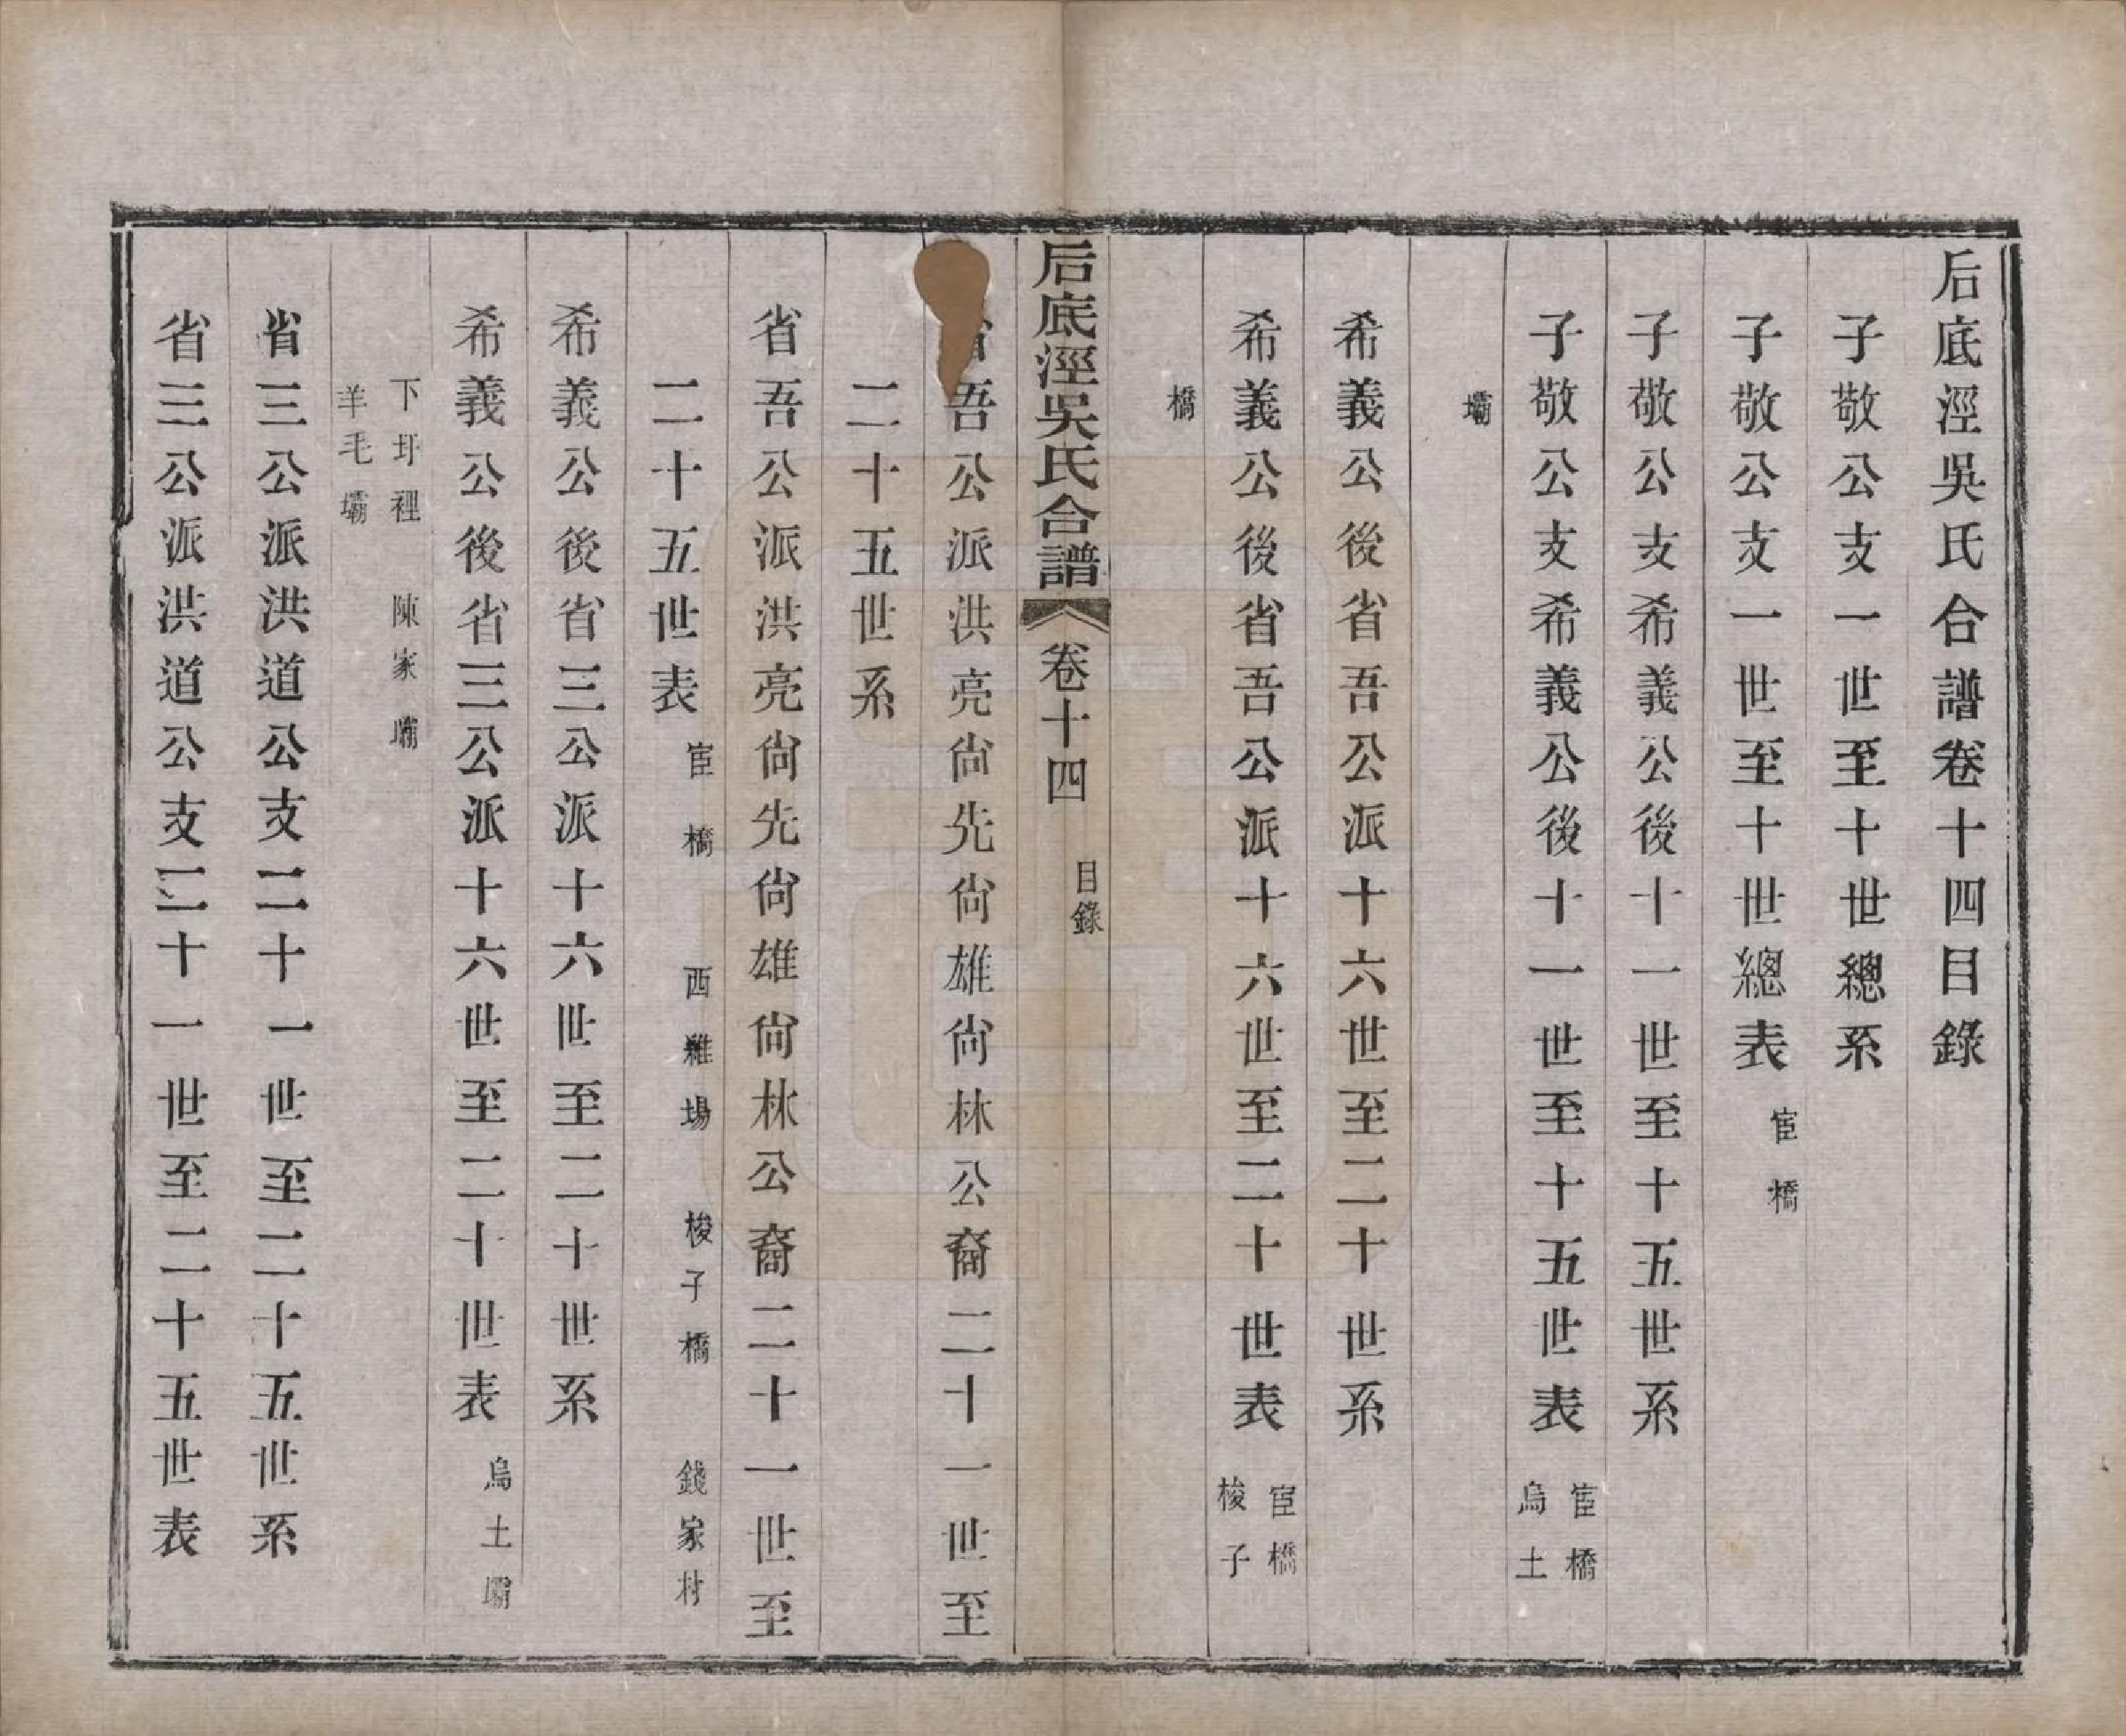 后底涇吳氏合譜卷十四目錄
子敬公支一世至十世總系
子敬公支一世至十世總表 宦橋
子敬公支希義公後十一世至十五世系
子敬公支希義公後十一世至十五世表 宦橋 烏土
壩
希義公後省吾公派十六世至二十世系
希義公後省吾公派十六世至二十世表 宦橋 梭子
橋
后底涇吳氏合譜 卷十四 目錄
吾公派洪亮尙先尙雄尙林公裔二十一世至
二十五世系
省吾公派洪亮尙先尙雄尙林公裔二十一世至
二十五世表 宦橋 西雞場 梭子橋 錢家村
希義公後省三公派十六世至二十世系
希義公後省三公派十六世至二十世表 烏土壩
下圩裡 陳家壩
羊毛壩
省三公派洪道公支二十一世至二十五世系
省三公派洪道公支二十一世至二十五世表